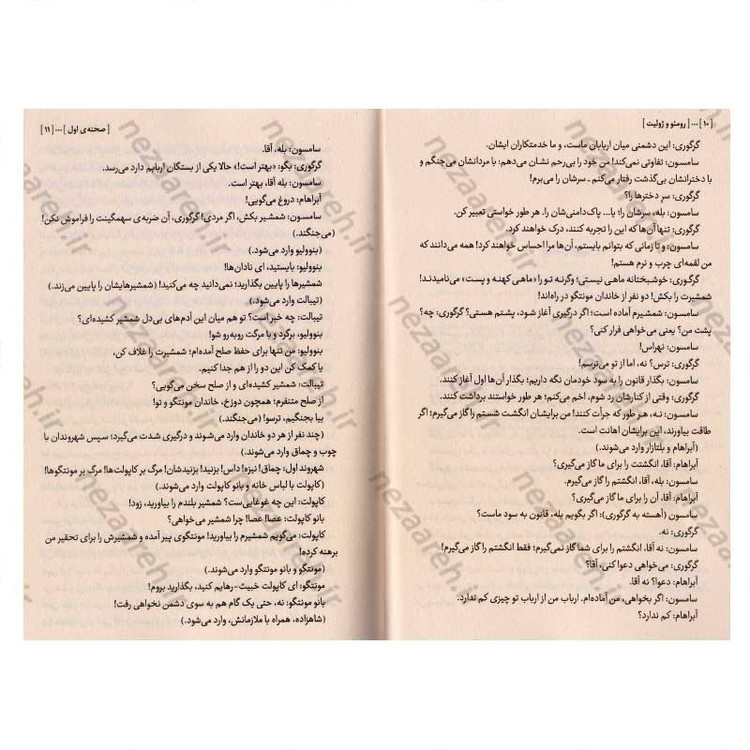 [ ۱۰ ] ... [ رومئو و ژولیت ]
گرگوری: این دشمنی میان اربابان ماست، و ما خدمتکاران ایشان.
سامسون: تفاوتی نمی‌کند! من خود را بی‌رحم نشان می‌دهم؛ با مردانشان می‌جنگم و
با دخترانشان بی‌گذشت رفتار می‌کنم ـ سرشان را می‌برم!
گرگوری: سرِ دخترها را؟
سامسون: بله، سرشان را؛ یا... پاک‌دامنی‌شان را. هر طور خواستی تعبیر کن.
گرگوری: تنها آن‌ها که این را تجربه کنند، درک خواهند کرد.
سامسون: و تا زمانی که بتوانم بایستم، آن‌ها مرا احساس خواهند کرد! همه می‌دانند که
من لقمه‌ای چرب و نرم هستم!
گرگوری: خوشبختانه ماهی نیستی؛ وگرنه تو را «ماهی کهنه و پست» می‌نامیدند!
شمشیرت را بکش! دو نفر از خاندان مونتگو در راه‌اند!
سامسون: شمشیرم آماده است؛ اگر درگیری آغاز شود، پشتم هستی؟ گرگوری: چه؟
پشت من؟ یعنی می‌خواهی فرار کنی؟
سامسون: نهراس!
گرگوری: ترس؟ نه، اما از تو می‌ترسم!
سامسون: بگذار قانون را به سود خودمان نگه داریم؛ بگذار آن‌ها اول آغاز کنند.
گرگوری: وقتی از کنارشان رد شوم، اخم می‌کنم؛ هر طور خواستند برداشت کنند.
سامسون: نـه، هـر طور که جرأت کنند! من برایشان انگشت شستم را گاز می‌گیرم؛ اگر
طاقت بیاورند، این برایشان اهانت است.
(آبراهام و بلتازار وارد می‌شوند.)
آبراهام: آقا، انگشتت را برای ما گاز می‌گیری؟
سامسون: بله، آقا، انگشتم را گاز می‌گیرم.
آبراهام: آقا، آن را برای ما گاز می‌گیری؟
سامسون: (آهسته به گرگوری): اگر بگویم بله، قانون به سود ماست؟
گرگوری: نه.
سامسون: نه آقا، انگشتم را برای شما گاز نمی‌گیرم؛ فقط انگشتم را گاز می‌گیرم!
گرگوری: می‌خواهی دعوا کنی، آقا؟
آبراهام: دعوا؟ نه آقا.
سامسون: اگر بخواهی، من آماده‌ام. ارباب من از ارباب تو چیزی کم ندارد.
آبراهام: کم ندارد؟
[ صحنه‌ی اول ] ... [ ۱۱ ]
سامسون: بله، آقا.
گرگوری: بگو: «بهتر است!» حالا یکی از بستگان اربابم دارد می‌رسد.
سامسون: بله آقا، بهتر است.
آبراهام: دروغ می‌گویی!
سامسون: شمشیر بکش، اگر مردی! گرگوری، آن ضربه‌ی سهمگینت را فراموش نکن!
(می‌جنگند.)
(بنوولیو وارد می‌شود.)
بنوولیو: بایستید، ای نادان‌ها!
شمشیرها را پایین بگذارید؛ نمی‌دانید چه می‌کنید! (شمشیرهایشان را پایین می‌زند.)
(تیبالت وارد می‌شود.)
تیبالت: چه خبر است؟ تو هم میان این آدم‌های بی‌دل شمشیر کشیده‌ای؟
بنوولیو، برگرد و با مرگت روبه‌رو شو!
بنوولیو: من تنها برای حفظ صلح آمده‌ام؛ شمشیرت را غلاف کن،
یا کمک کن این دو را از هم جدا کنیم.
تیبالت: شمشیر کشیده‌ای و از صلح سخن می‌گویی؟
از صلح متنفرم؛ همچون دوزخ، خاندان مونتگو و تو!
بیا بجنگیم، ترسو! (می‌جنگند.)
(چند نفر از هر دو خاندان وارد می‌شوند و درگیری شدت می‌گیرد؛ سپس شهروندان با
چوب و چماق وارد می‌شوند.)
شهروند اول: چماق! نیزه! داس! بزنید! بزنیدشان! مرگ بر کاپولت‌ها! مرگ بر مونتگوها!
(کاپولت با لباس خانه و بانو کاپولت وارد می‌شوند.)
کاپولت: این چه غوغایی‌ست؟ شمشیر بلندم را بیاورید، زود!
بانو کاپولت: عصا! عصا! چرا شمشیر می‌خواهی؟
کاپولت: می‌گویم شمشیرم را بیاورید! مونتگوی پیر آمده و شمشیرش را برای تحقیر من
برهنه کرده!
(مونتگو و بانو مونتگو وارد می‌شوند.)
مونتگو: ای کاپولت خبیث-رهایم کنید، بگذارید بروم!
بانو مونتگو: نه، حتی یک گام هم به سوی دشمن نخواهی رفت!
(شاهزاده، همراه با ملازمانش، وارد می‌شود.)
nezaareh.ir